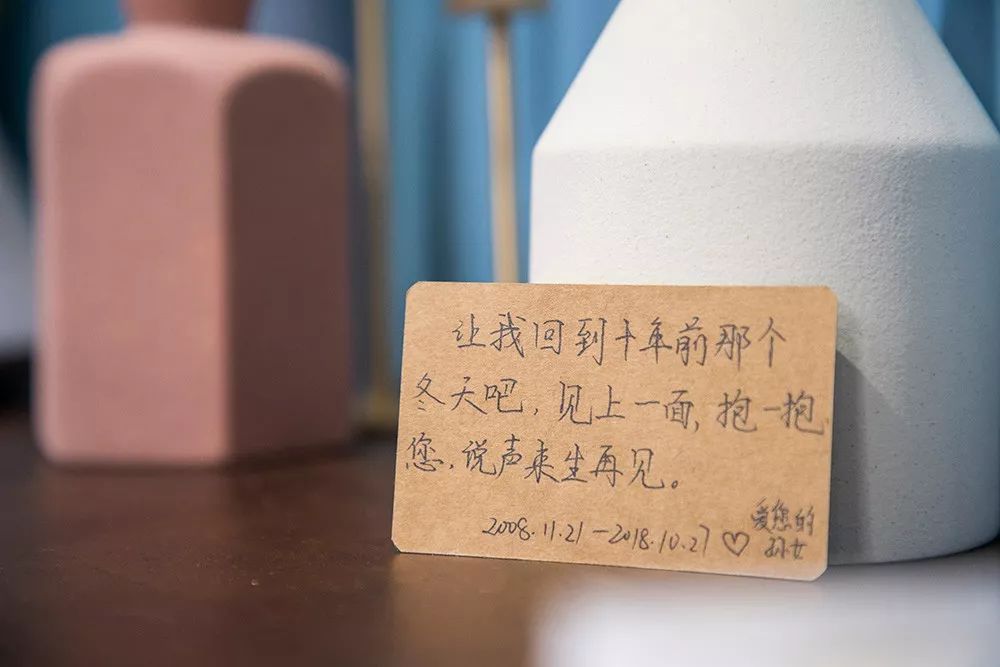 让我回到十年前那个
冬天吧，见上一面，抱一抱
您，说声来生再见。
2008.11.21—2018.10.27♡
爱您的
孙女